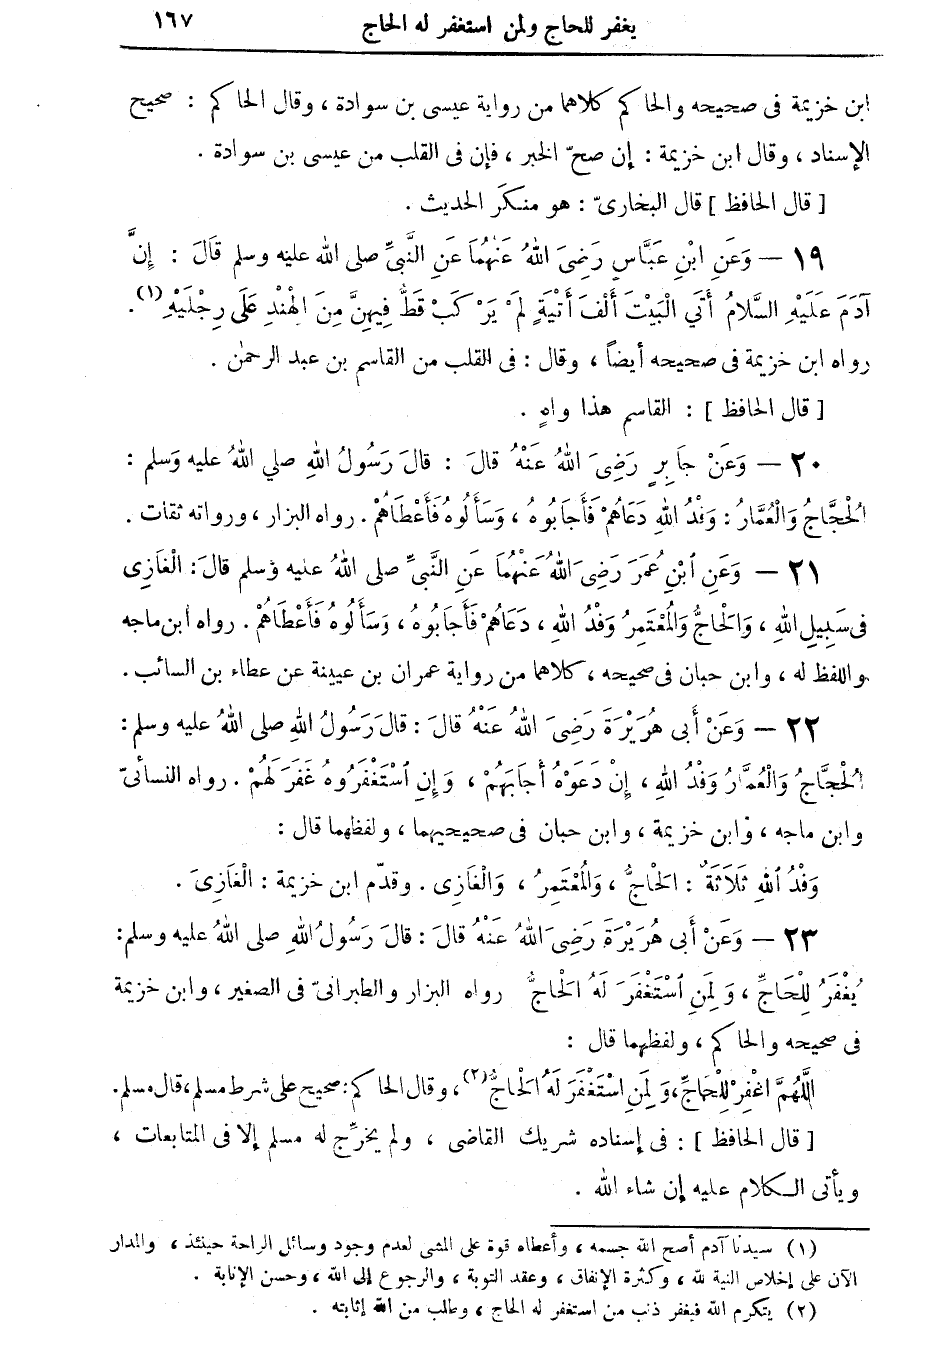 يغفر للحاج ولمن استغفر له الحاج ١٦٧
ابن خزيمة فى صحيحه والحاكم كلاهما من رواية عيسى بن سوادة ، وقال الحاكم : صحيح
الإسناد ، وقال ابن خزيمة : إن صحّ الخبر ، فإن فى القلب من عيسى بن سوادة .
[ قال الحافظ ] قال البخارىّ : هو منكَر الحديث .
١٩ — وَعَنِ ابْنِ عَبَّاسٍ رَضِىَ اللهُ عَنْهُمَا عَنِ النَّبِىِّ صلى الله عليه وسلم قَالَ : إِنَّ
آدَمَ عَلَيْهِ السَّلَامُ أَتَى الْبَيْتَ أَلْفَ أَتْيَةٍ لَمْ يَرْكَبْ قَطُّ فِيهِنَّ مِنَ الْهِنْدِ عَلَى رِجْلَيْهِ (١) .
رواه ابن خزيمة فى صحيحه أيضاً ، وقال : فى القلب من القاسم بن عبد الرحمٰن .
[ قال الحافظ ] : القاسم هذا واهٍ .
٢٠ — وَعَنْ جَابِرٍ رَضِىَ اللهُ عَنْهُ قَالَ : قَالَ رَسُولُ اللهِ صلي اللهُ عليه وَسلم :
الْحُجَّاجُ وَالْعُمَّارُ : وَفْدُ اللهِ دَعَاهُمْ فَأَجَابُوهُ ، وَسَأَلُوهُ فَأَعْطَاهُمْ . رواه البزار ، ورواته ثقات .
٢١ — وَعَنِ ابْنِ عُمَرَ رَضِىَ اللهُ عَنْهُمَا عَنِ النَّبِىِّ صلى اللهُ عليه وَسلم قَالَ : الْغَازِى
فى سَبِيلِ اللهِ ، وَالْحَاجُّ وَالْمُعْتَمِرُ وَفْدُ اللهِ ، دَعَاهُمْ فَأَجَابُوهُ ، وَسَأَلُوهُ فَأَعْطَاهُمْ . رواه ابن ماجه
واللفظ له ، وابن حبان فى صحيحه ، كلاهما من رواية عمران بن عيينة عن عطاء بن السائب .
٢٢ — وَعَنْ أَبى هُرَيْرَةَ رَضِىَ اللهُ عَنْهُ قَالَ : قَالَ رَسُولُ اللهِ صلى اللهُ عليه وسلم :
الْحُجَّاجُ وَالْعُمَّارُ وَفْدُ اللهِ ، إِنْ دَعَوْهُ أَجَابَهُمْ ، وَإِنِ اسْتَغْفَرُوهُ غَفَرَ لَهُمْ . رواه النسائىّ
وابن ماجه ، وابن خزيمة ، وابن حبان فى صحيحيهما ، ولفظهما قال :
وَفْدُ اللهِ ثَلَاثَةٌ : الْحَاجُّ ، وَالْمُعْتَمِرُ ، وَالْغَازِى . وقدّم ابن خزيمة : الْغَازِىَ .
٢٣ — وَعَنْ أَبى هُرَيْرَةَ رَضِىَ اللهُ عَنْهُ قَالَ : قَالَ رَسُولُ اللهِ صلى اللهُ عليه وسلم :
يُغْفَرُ لِلْحَاجِّ ، وَلِمَنِ اسْتَغْفَرَ لَهُ الْحَاجُّ رواه البزار والطبرانىّ فى الصغير ، وابن خزيمة
فى صحيحه والحاكم ، ولفظهما قال :
اللَّهُمَّ اغْفِرْ لِلْحَاجِّ ، وَلِمَنِ اسْتَغْفَرَ لَهُ الْحَاجُّ (٢) ، وقال الحاكم : صحيح على شرط مسلم ، قال مسلم .
[ قال الحافظ ] : فى إسناده شريك القاضى ، ولم يخرِّج له مسلم إلا فى المتابعات ،
ويأتى الكلام عليه إن شاء الله .
(١) سيدنا آدم أصح الله جسمه ، وأعطاه قوة على المشى لعدم وجود وسائل الراحة حينئذ ، والمدار
الآن على إخلاص النية لله ، وكثرة الإنفاق ، وعقد التوبة ، والرجوع إلى الله ، وحسن الإنابة .
(٢) يتكرم الله فيغفر ذنب من استغفر له الحاج ، وطلب من الله إثابته .